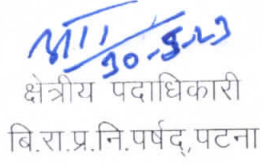 30-5-23
क्षेत्रीय पदाधिकारी
बि.रा.प्र.नि.पर्षद्,पटना